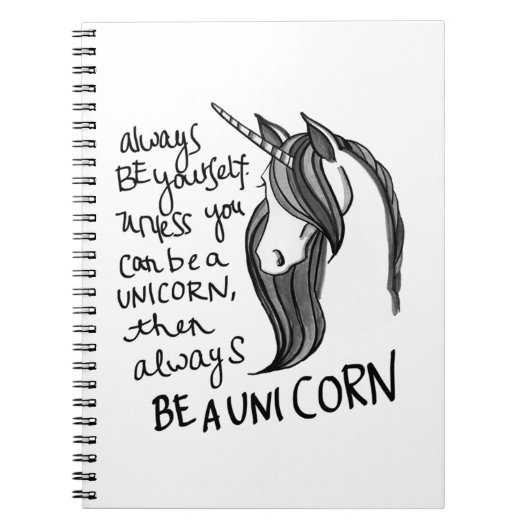 always
BE yourself.
unless you
can be a
UNICORN,
then
always
BE A UNICORN